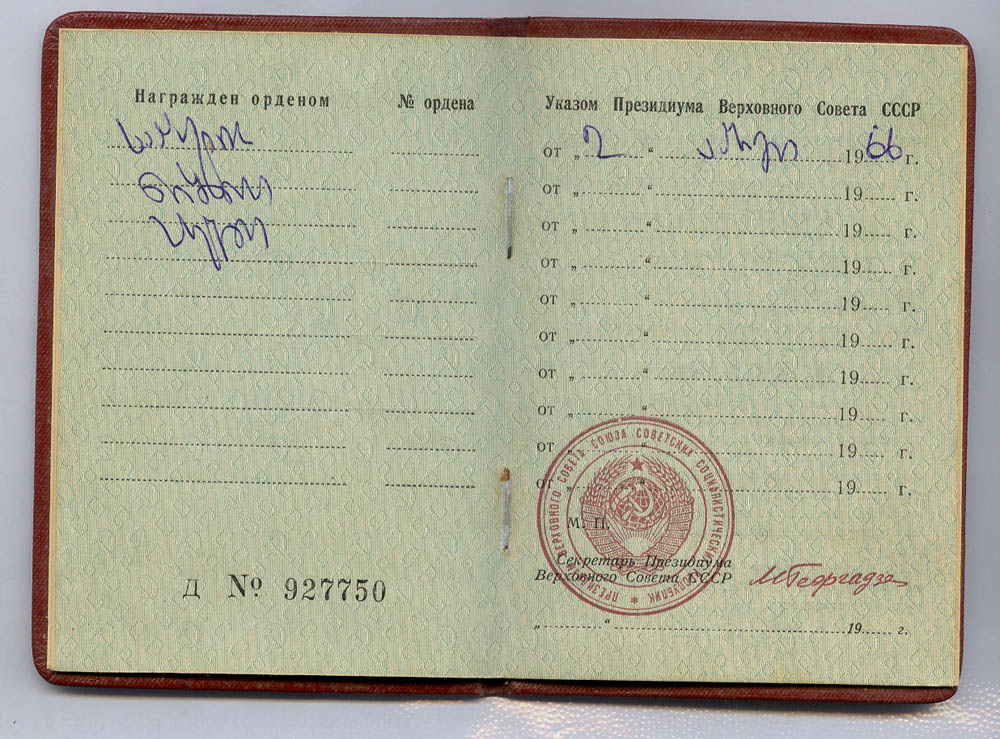 Награжден орденом
№ ордена
Д № 927750
Указом Президиума Верховного Совета СССР
от „ 2 “ 19 66 г.
от „ “ 19 г.
от „ “ 19 г.
от „ “ 19 г.
от „ “ 19 г.
от „ “ 19 г.
от „ “ 19 г.
от „ “ 19 г.
от „ “ 19 г.
от „ “ 19 г.
ПРЕЗИДИУМ ВЕРХОВНОГО СОВЕТА СОЮЗА СОВЕТСКИХ СОЦИАЛИСТИЧЕСКИХ РЕСПУБЛИК
М. П.
Секретарь Президиума
Верховного Совета СССР
М Георгадзе
„ “ 19 г.